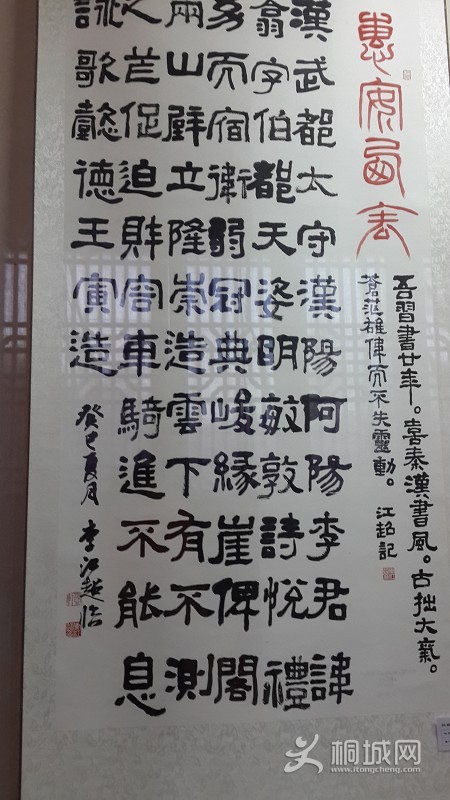 惠安西表
吾習書廿年。喜秦漢書風。古拙大氣。
蒼茫雄偉而不失靈動。江超記
漢武都太守漢陽阿陽李君諱
翕字伯都天姿明敏敦詩悅禮
而宿衛弱冠典峻緣崖俾閣
兩山壁立隆崇造雲下有不測
之芒促迫財容車騎進不能息
詠歌懿德王寅造
癸巳夏月李江超臨
桐城网
www.itongcheng.com